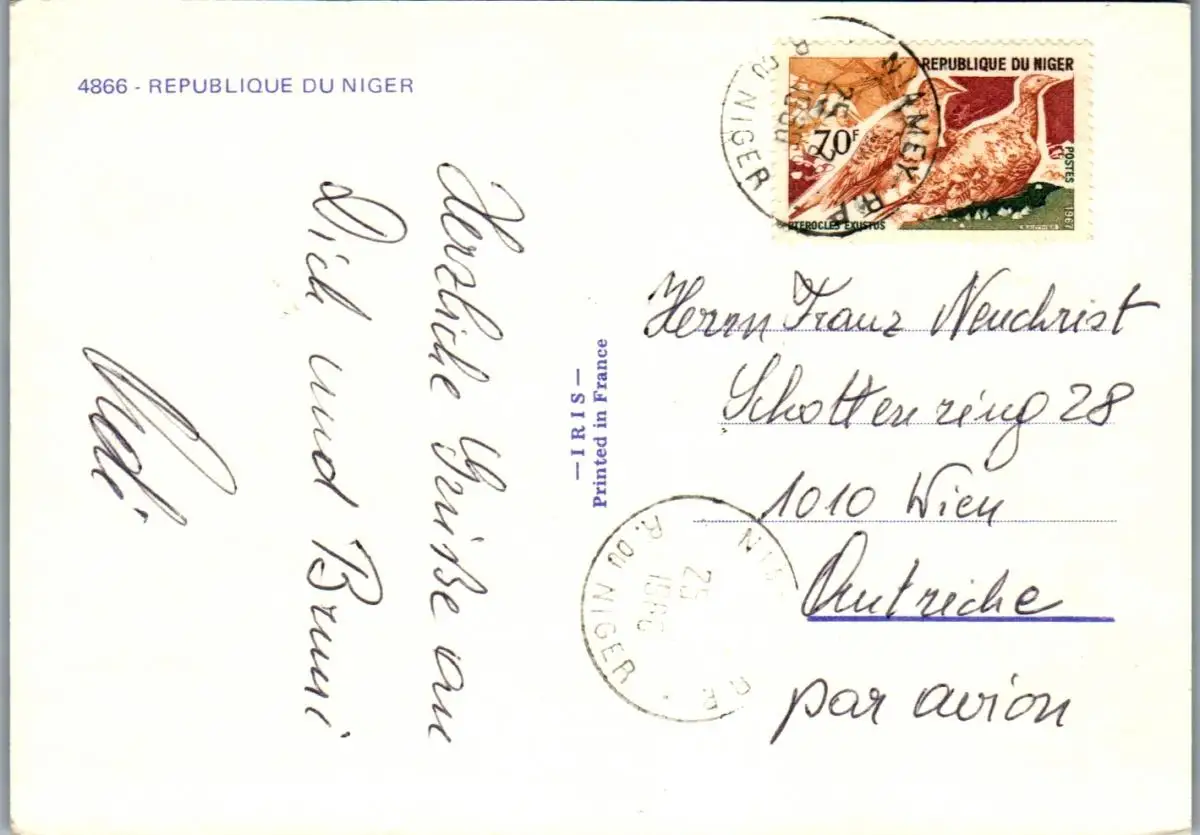 4866 - REPUBLIQUE DU NIGER
REPUBLIQUE DU NIGER
70F
POSTES
1967
PTEROCLES EXUSTUS
GAUTHIER
NIAMEY R.P.
25
R. DU NIGER
Herzliche Grüße an
Dich und Bruni
— IRIS —
Printed in France
Herrn Franz Neuchrist
Schottenring 28
1010 Wien
Autriche
par avion
25
R. DU NIGER